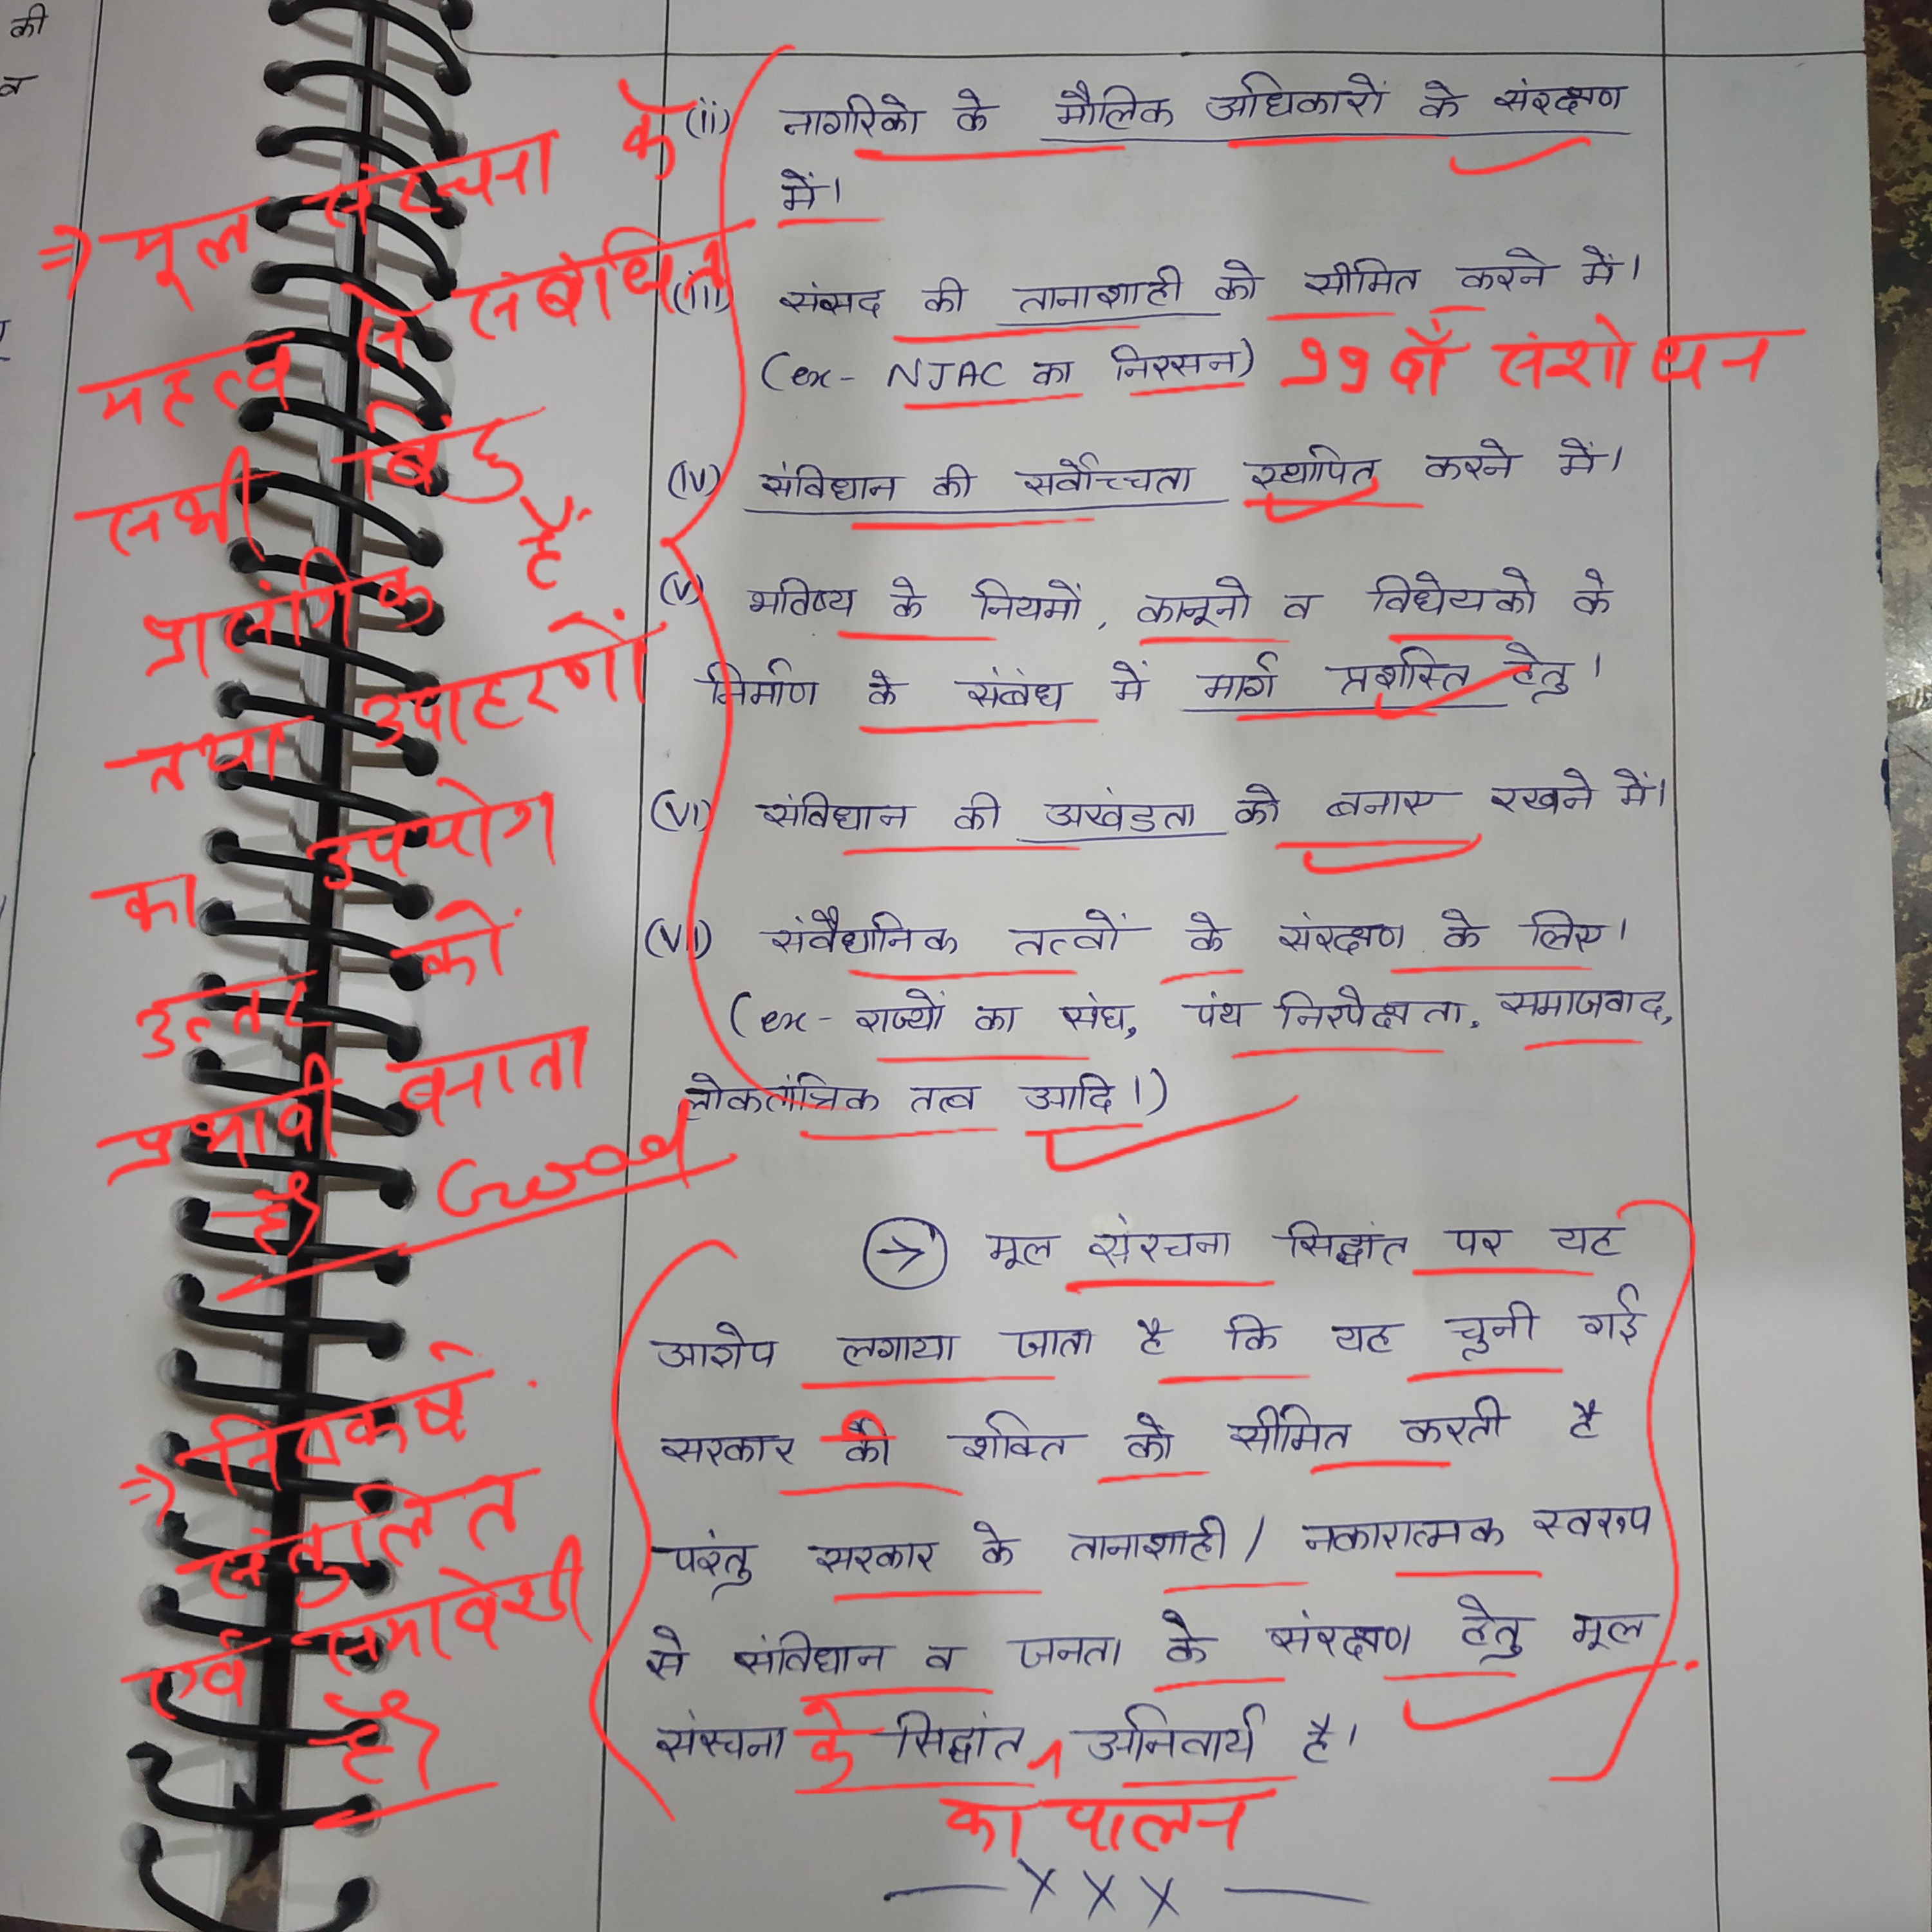 की
व
(ii) नागरिको के मौलिक अधिकारों के संरक्षण
में।
(iii) संसद की तानाशाही को सीमित करने में।
(ex- NJAC का निरसन) 99 वाँ संशोधन
(iv) संविधान की सर्वोच्चता स्थापित करने में।
(v) भविष्य के नियमों, कानूनो व विधेयको के
निर्माण के संबंध में मार्ग प्रशस्ति हेतु।
(vi) संविधान की अखंडता को बनाए रखने में।
(vii) संवैधानिक तत्वों के संरक्षण के लिए।
(ex- राज्यों का संघ, पंथ निरपेक्षता, समाजवाद,
लोकतांत्रिक तत्व आदि।)
→ मूल संरचना सिद्धांत पर यह
आरोप लगाया जाता है कि यह चुनी गई
सरकार की शक्ति को सीमित करती है
परंतु सरकार के तानाशाही / नकारात्मक स्वरुप
से संविधान व जनता के संरक्षण हेतु मूल
संरचना के सिद्धांत अनिवार्य है।
का पालन
— X X X —
⇒ मूल संरचना के
महत्व से संबंधित
सभी बिंदु
प्रासंगिक हैं
तथा उदाहरणों
का उपयोग
उत्तर को
प्रभावी बनाता
है। Good
⇒ निष्कर्ष
संतुलित
एवं समावेशी
है।